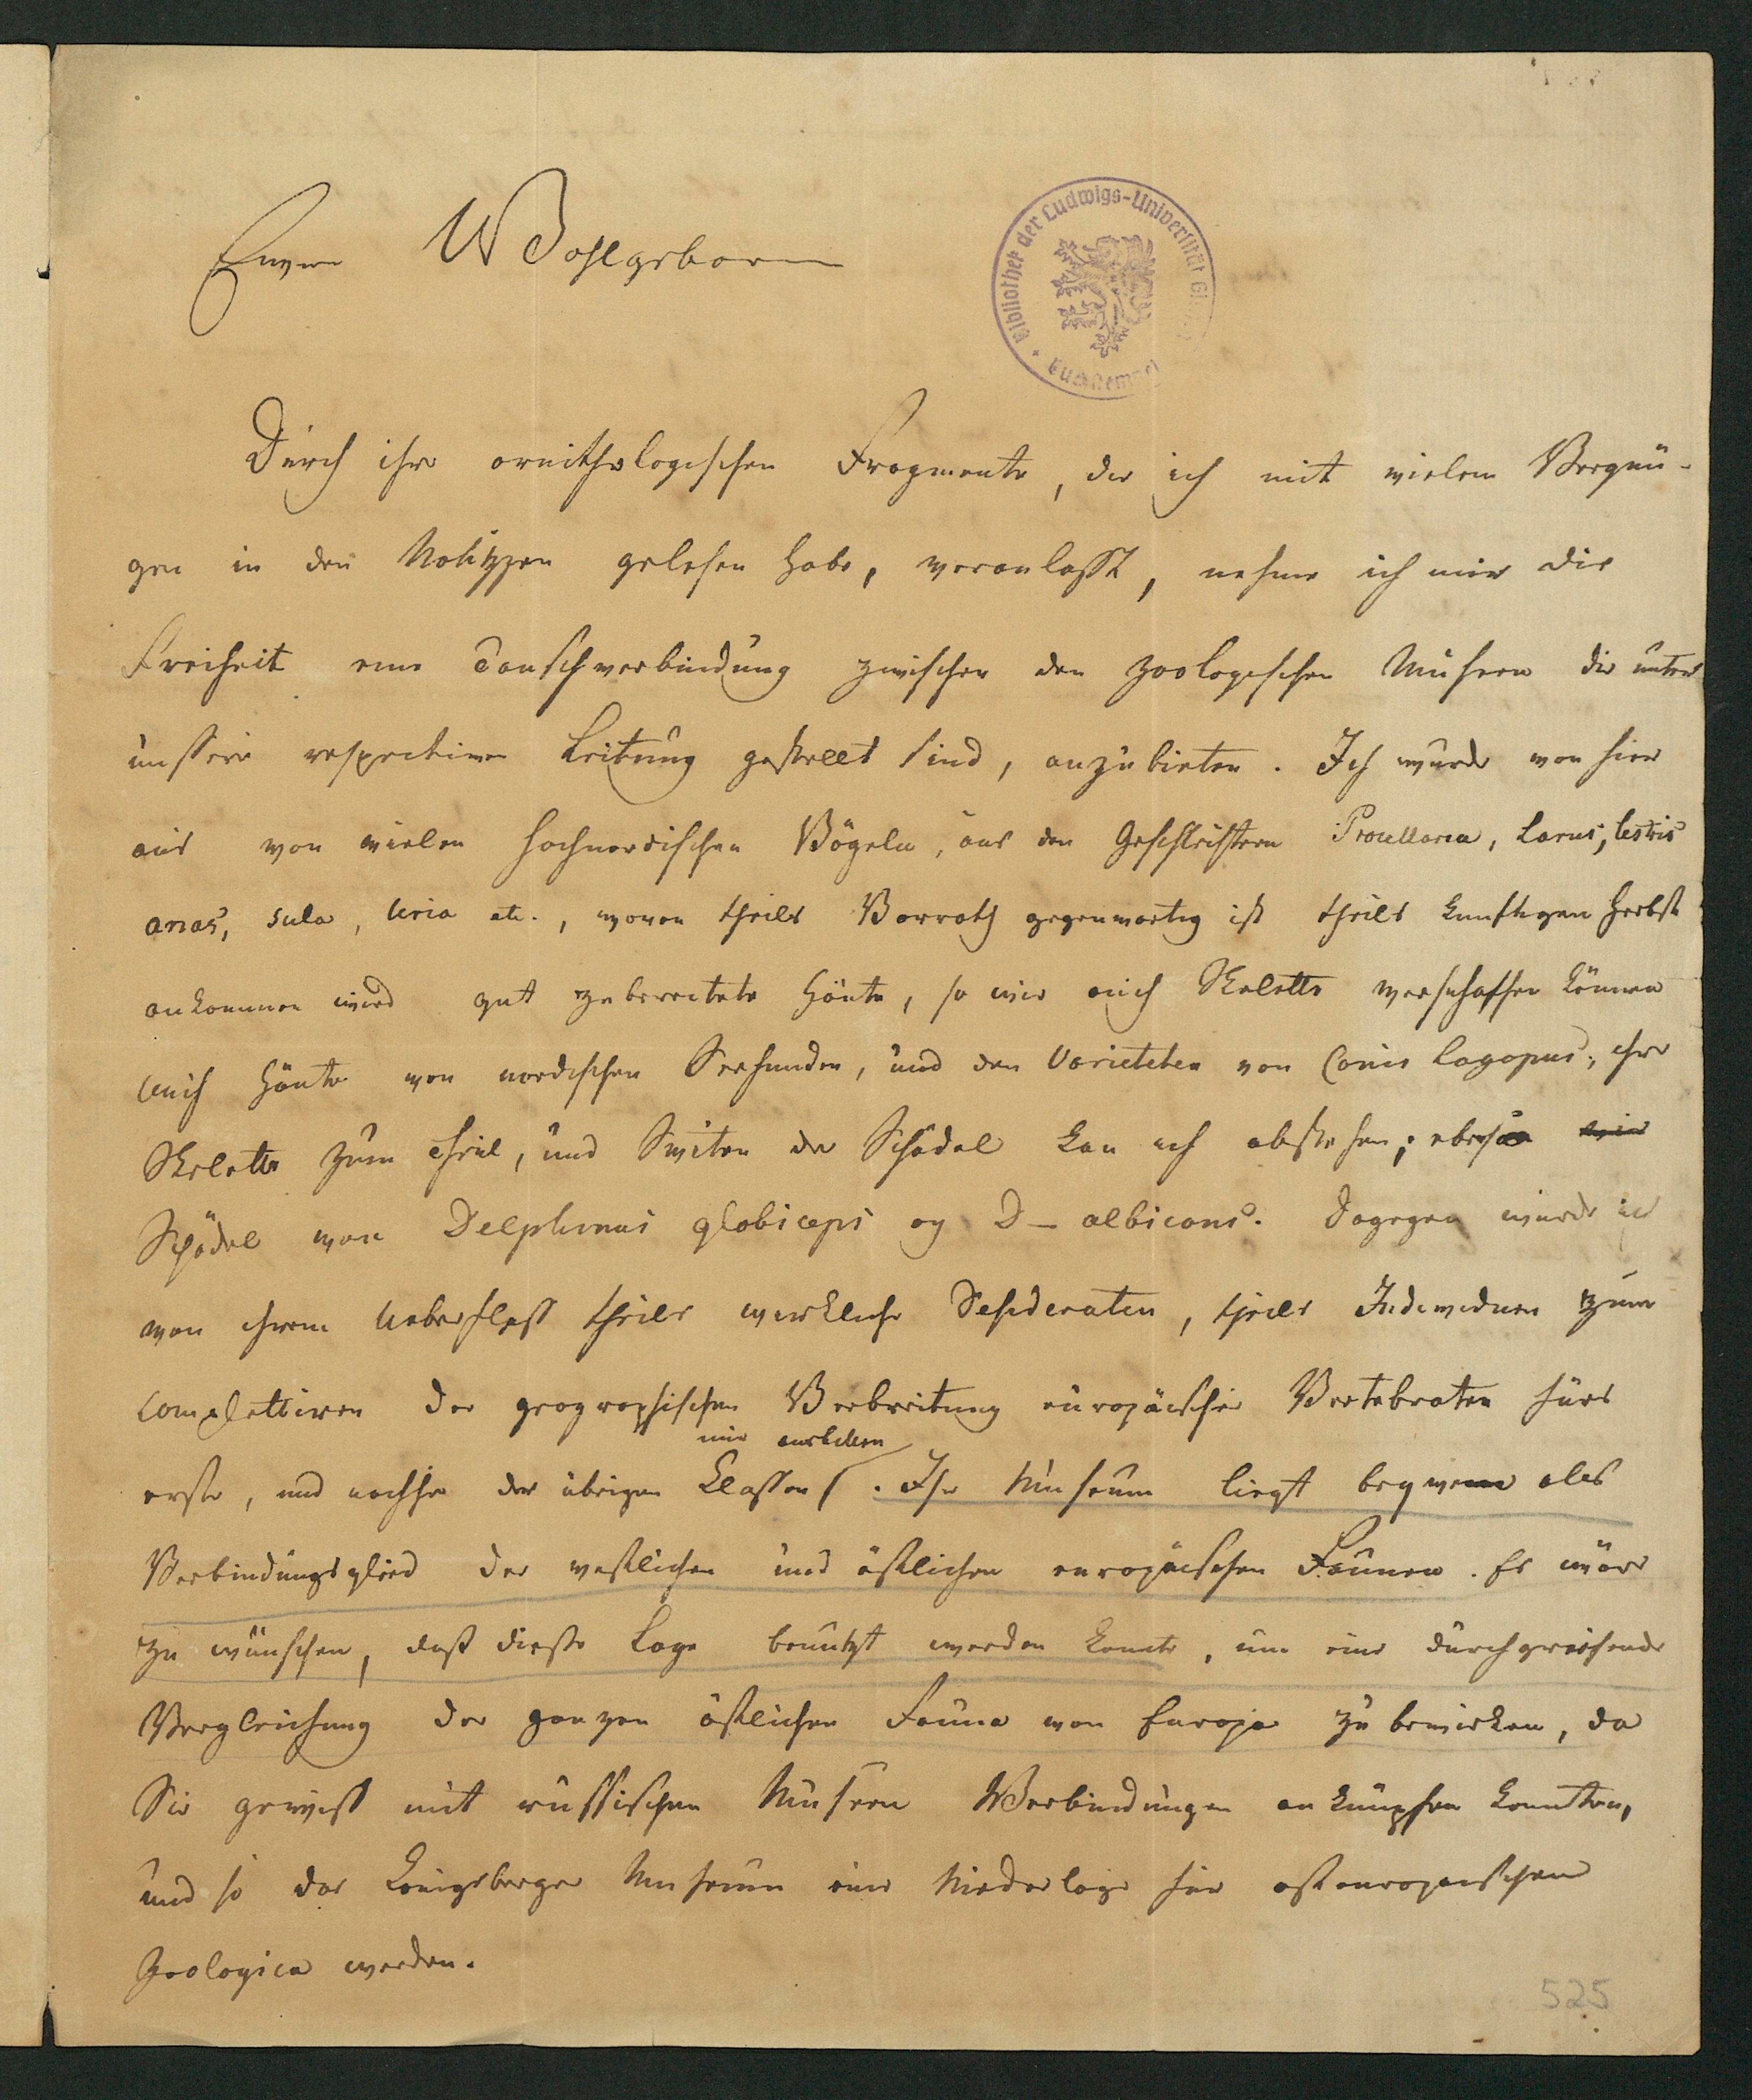 Euren Wohlgeboren
Bibliothek der Ludwigs-Universität
Durch ihre ornithologischen Fragmente, die ich mit vielem Vergnü-
gen in den Notizzen gelesen habe, veranlasst, nehme ich mir die
Freiheit eine Tauschverbindung zwischen den zoologischen Museen die unter
unssere respectiven Leitung gestellt sind, anzubieten. Ich wurde von hier
aus von vielen hochnordischen Vögeln, aus den Geschlechtern Procellaria, Larus, Lestris
anas, sula, Uria etc., wovon theils Vorrath gegenwartig ist theils kunftigen Herbst
ankommen wird gut zubereitete Häute, so wie auch Skelette verschaffen können
Auch Häute von nordischen Seehunden, und den Varieteten von Canis lagopus; ihre
Skelette zum Theil, und Suiten der Schädel kan ich abstehen; ebenso
Schädel von Delphinus globiceps og D– albicans. Dagegen wurde ich
von ihrem Ueberfluss theils werkliche Desideraten, theils Individuen zum
completiren der geographischen Verbreitung europäischer Vertebraten fürs
mir ausbitten
erste, und nachher der übrigen Klassen. Ihr Museum liegt beqvem als
Verbindungsglied der westlichen und östlichen europäischen Faunen. Es wäre
zu wünschen, dass diesse Lage benutzt werden konnte, um eine durchgreifende
Vergleichung der ganzen östlichen Fauna von Europa zu bewirken, da
Sie gewiss mit russischen Museen Verbindungen anknüpfen konnten,
und so das Königsberger Museum eine Niederlage für osteuropaischen
Zoologica werden.
525